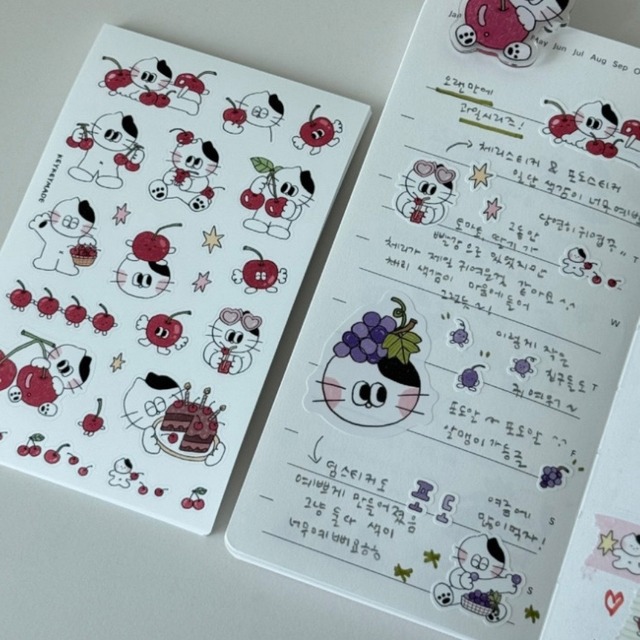 KEYNEMADE
Jan
May Jun Jul Aug Sep
오랜만에
과일시리즈!
체리스티커 & 포도스티커
일단 색감이 너무예뻐
당연히 귀엽쥬
그동안
토마토 딸기 가
빨강으로 있었지만
체리가 제일 귀여운것 같아요 ^^
체리 색감이 마음에들어
W
이렇게 작은
친구들도 T
귀여워!~
포도알 서 포도알
알맹이 가득
F
포도
띵스티커도
예쁘게 만들어졌음
그냥 둘다 색이
너무예뻐요ㅎㅎ
여름에
많이먹자!
S
S